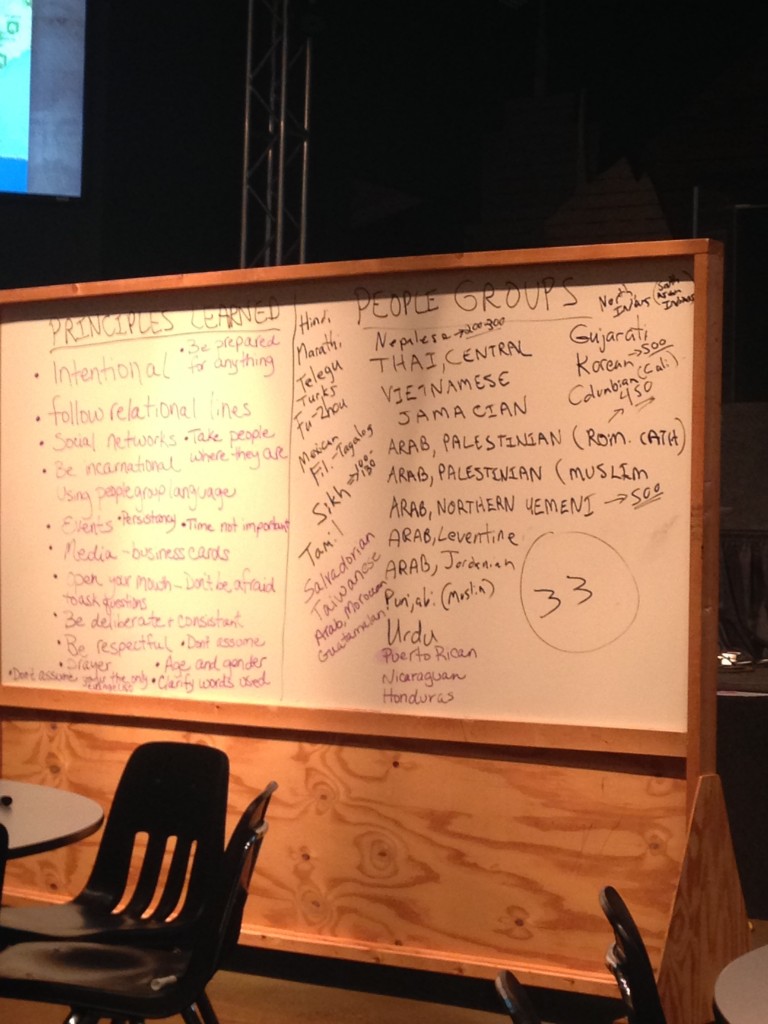 PRINCIPLES LEARNED
• Intentional • Be prepared for anything
• follow relational lines
• Social networks • Take people where they are
• Be incarnational
Using people group language
• Events • Persistancy • Time not important
• Media - business cards
• Open your mouth - Don't be afraid
to ask questions
• Be deliberate + consistant
• Be respectful • Don't assume
• Prayer • Age and gender
• Don't assume you're the only • Clarify words used
PEOPLE GROUPS
Hindi
Marathi
Telegu
Turks
Fu-Zhou
Mexican
Fil.-Tagalog
Sikh → 100-130
Tamil
Salvadorian
Taiwanese
Arab, Moroccan
Guatemalan
Nepalese → 200-300
THAI, CENTRAL
VIETNAMESE
JAMACIAN
ARAB, PALESTINIAN (ROM. CATH)
ARAB, PALESTINIAN (MUSLIM
ARAB, NORTHERN YEMENI → 500
ARAB, Leventine
ARAB, Jordanian
Punjabi (Muslim)
Urdu
Puerto Rican
Nicaraguan
Honduras
North Indians (South Asian Indians
Gujarati
Korean → 500
Columbian (Cali)
450
33